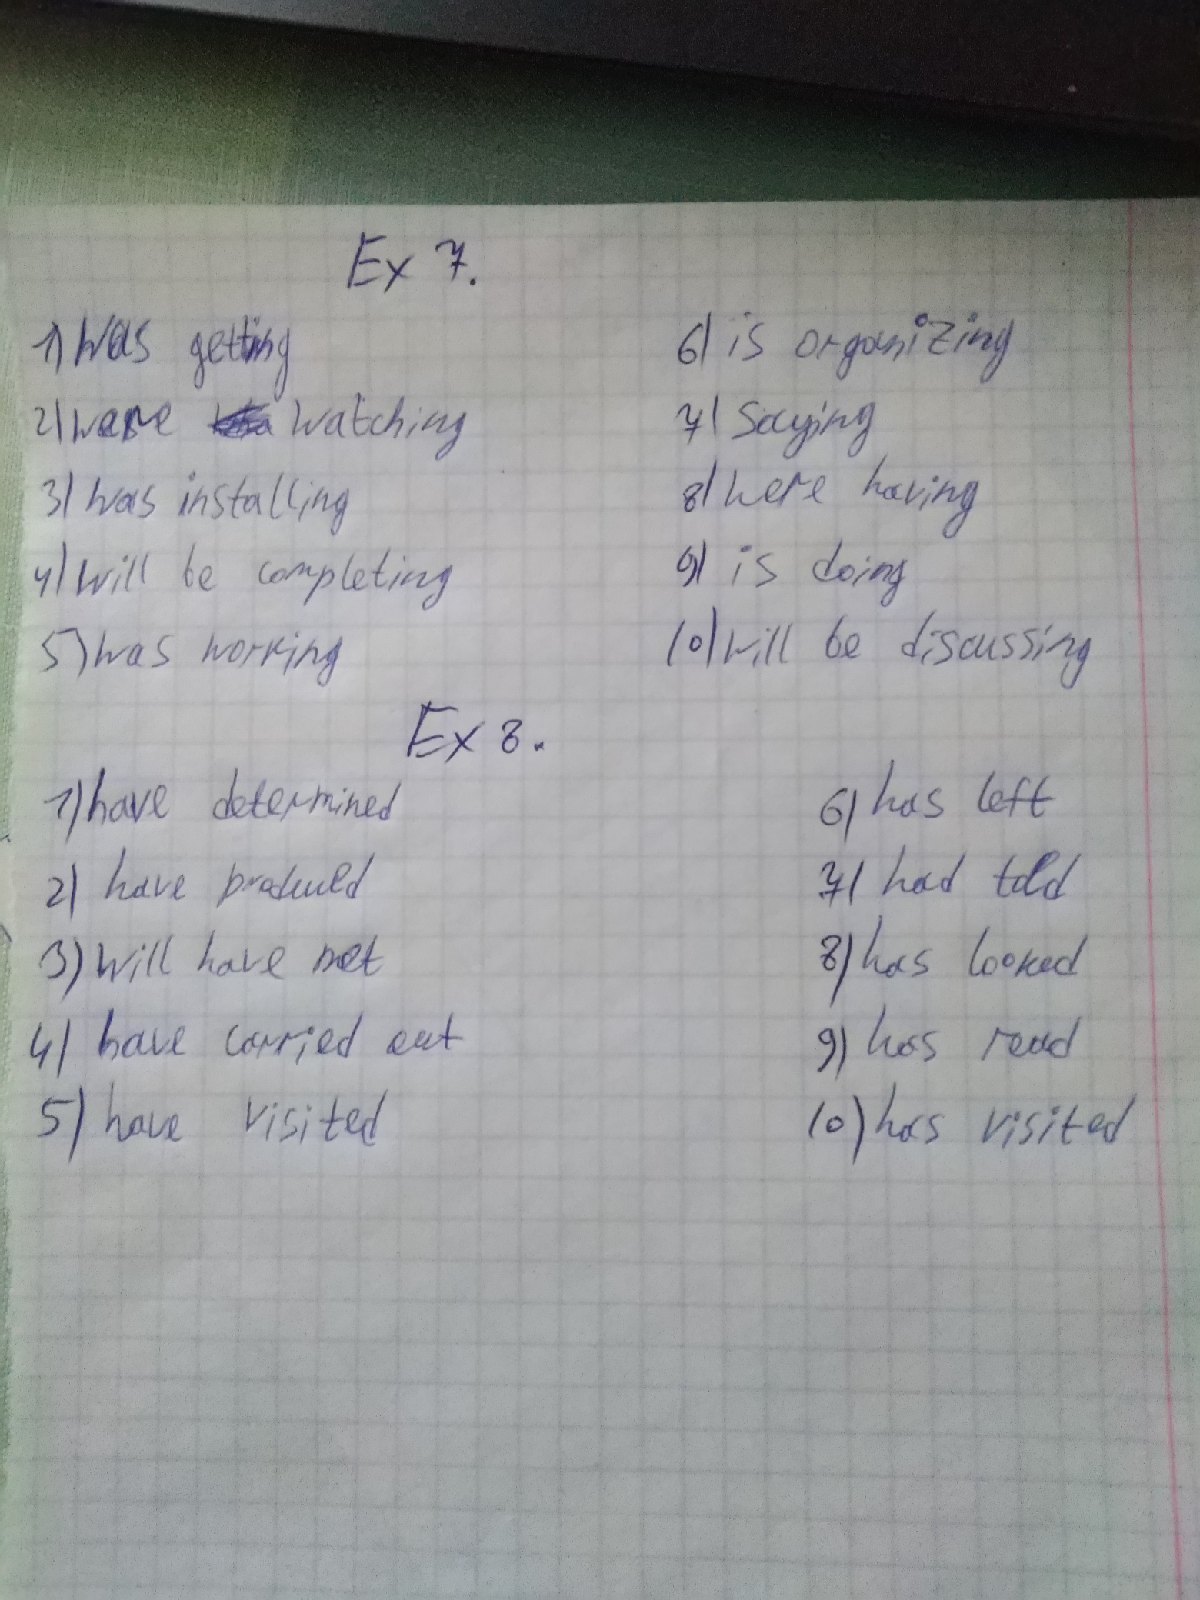 Ex 7.
1) was getting
2) were watching
3) was installing
4) will be completing
5) was working
6) is organizing
7) Saying
8) were having
9) is doing
10) will be discussing
Ex 8.
1) have determined
2) have
3) will have met
4) have carried out
5) have visited
6) has left
7) had told
8) has looked
9) has read
10) has visited